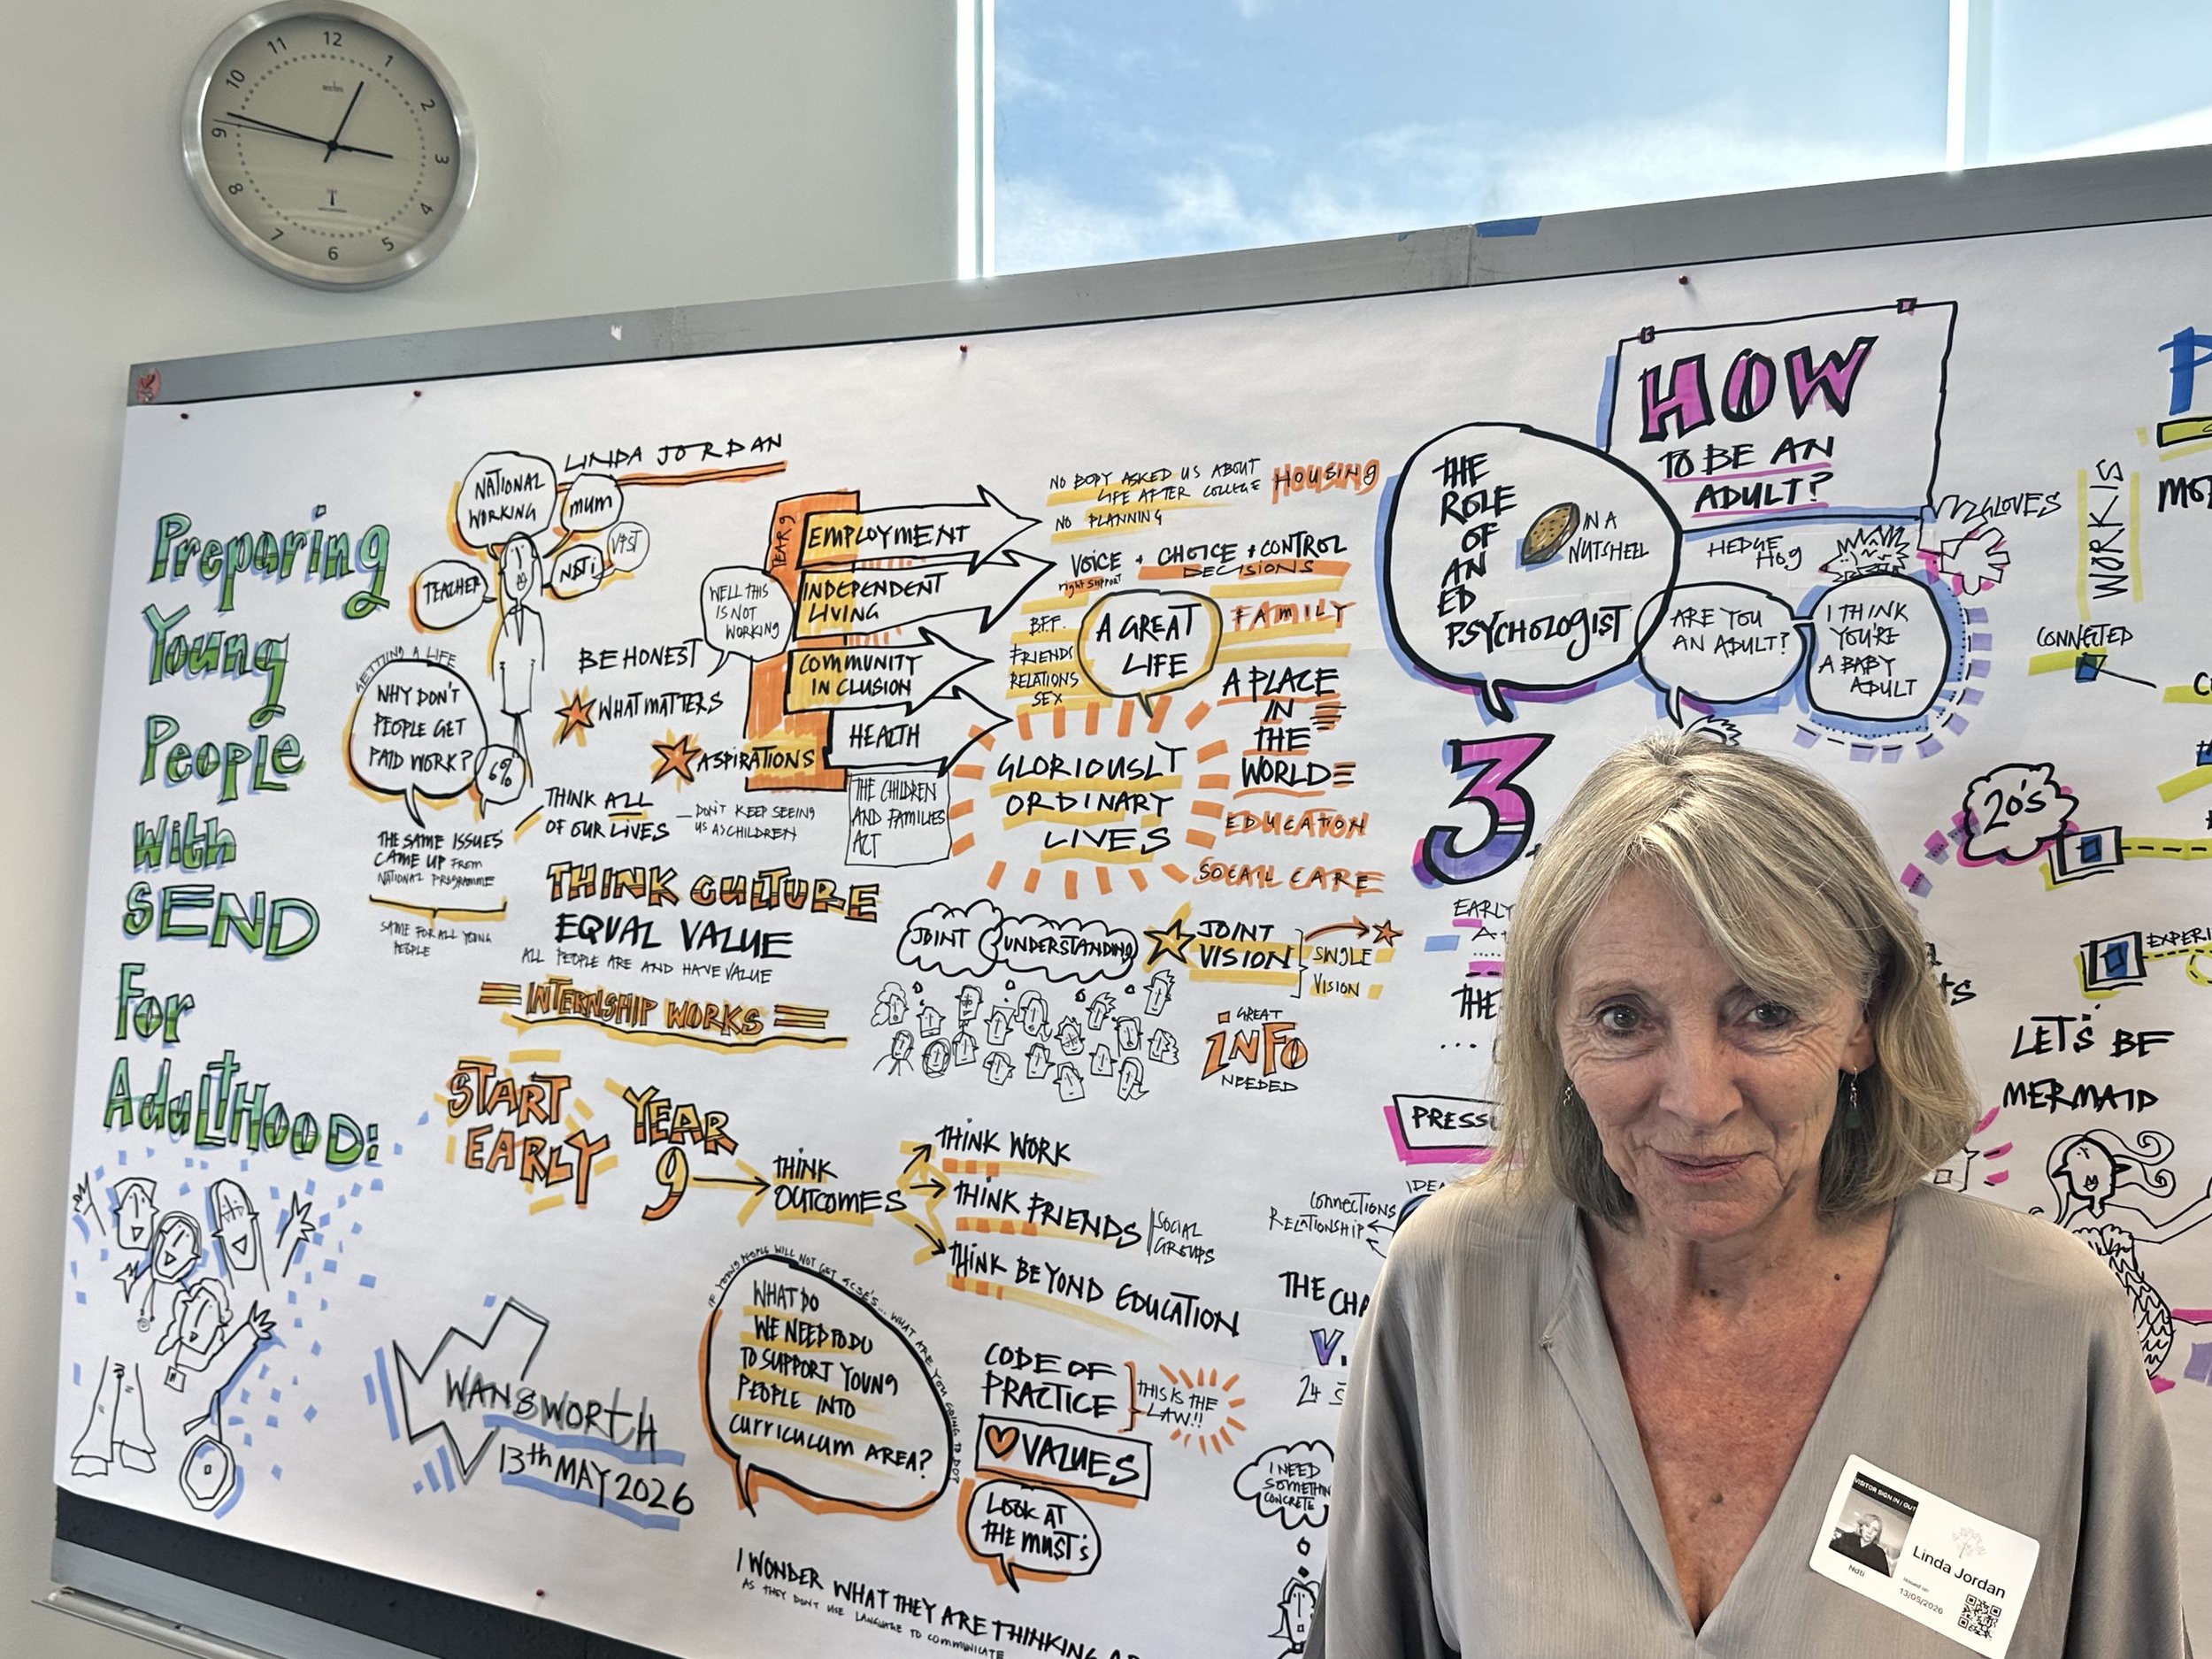 12
1
2
3
4
5
6
7
8
9
10
11
Preparing
Young
People
With
SEND
For
AdulTHOOD:
LINDA JORDAN
NATIONAL
WORKING
mum
TEACHER
NDTi
GETTING A LIFE
WHY DON'T
PEOPLE GET
PAID WORK?
6%
THE SAME ISSUES
CAME UP FROM
NATIONAL PROGRAMME
SAME FOR ALL YOUNG
PEOPLE
BE HONEST
WHAT MATTERS
ASPIRATIONS
THINK ALL
OF OUR LIVES
DON'T KEEP SEEING
US AS CHILDREN
THINK CULTURE
EQUAL VALUE
ALL PEOPLE ARE AND HAVE VALUE
INTERNSHIP WORKS
WELL THIS
IS NOT
WORKING
YEAR 9
EMPLOYMENT
INDEPENDENT
LIVING
COMMUNITY
IN CLUSION
HEALTH
THE CHILDREN
AND FAMILIES
ACT
NO BODY ASKED US ABOUT
LIFE AFTER COLLEGE
NO PLANNING
HOUSING
VOICE + CHOICE + CONTROL
right support
DECISIONS
B.F.F.
FRIENDS
RELATIONS
SEX
A GREAT
LIFE
FAMILY
A PLACE
IN
THE
WORLD
EDUCATION
SOCAIL CARE
GLORIOUSLY
ORDINARY
LIVES
JOINT
UNDERSTANDING
JOINT
VISION
SINGLE
VISION
GREAT
iNFO
NEEDED
START
EARLY
YEAR
9
THINK
OUTCOMES
THINK WORK
THINK FRIENDS
SOCIAL
GROUPS
THINK BEYOND EDUCATION
WANSWORTH
13th MAY 2026
IF YOUNG PEOPLE WILL NOT GET GCSE'S... WHAT ARE YOU GOING TO DO?
WHAT DO
WE NEED TO DO
TO SUPPORT YOUNG
PEOPLE INTO
CURRICULUM AREA?
CODE OF
PRACTICE
THIS IS THE
LAW!!
VALUES
LOOK AT
THE MUST'S
I WONDER WHAT THEY ARE THINKING
AS THEY DON'T USE LANGUAGE TO COMMUNICATE
THE
ROLE
OF
AN
ED
PSYCHOLOGIST
IN A
NUTSHELL
HOW
TO BE AN
ADULT?
HEDGE
HOG
GLOVES
ARE YOU
AN ADULT?
I THINK
YOU'RE
A BABY
ADULT
3.
EARLY
THE
PRESSU
CONNECTIONS
RELATIONSHIP
IDEA
THE CHA
V.
24
I NEED
SOMETHIN
CONCRETE
WORK IS
CONNECTED
20'S
EXPERI
LET'S BE
MERMAID
P
MO
VISITOR SIGN IN / OUT
Ndti
Linda Jordan
Issued on:
13/05/2026